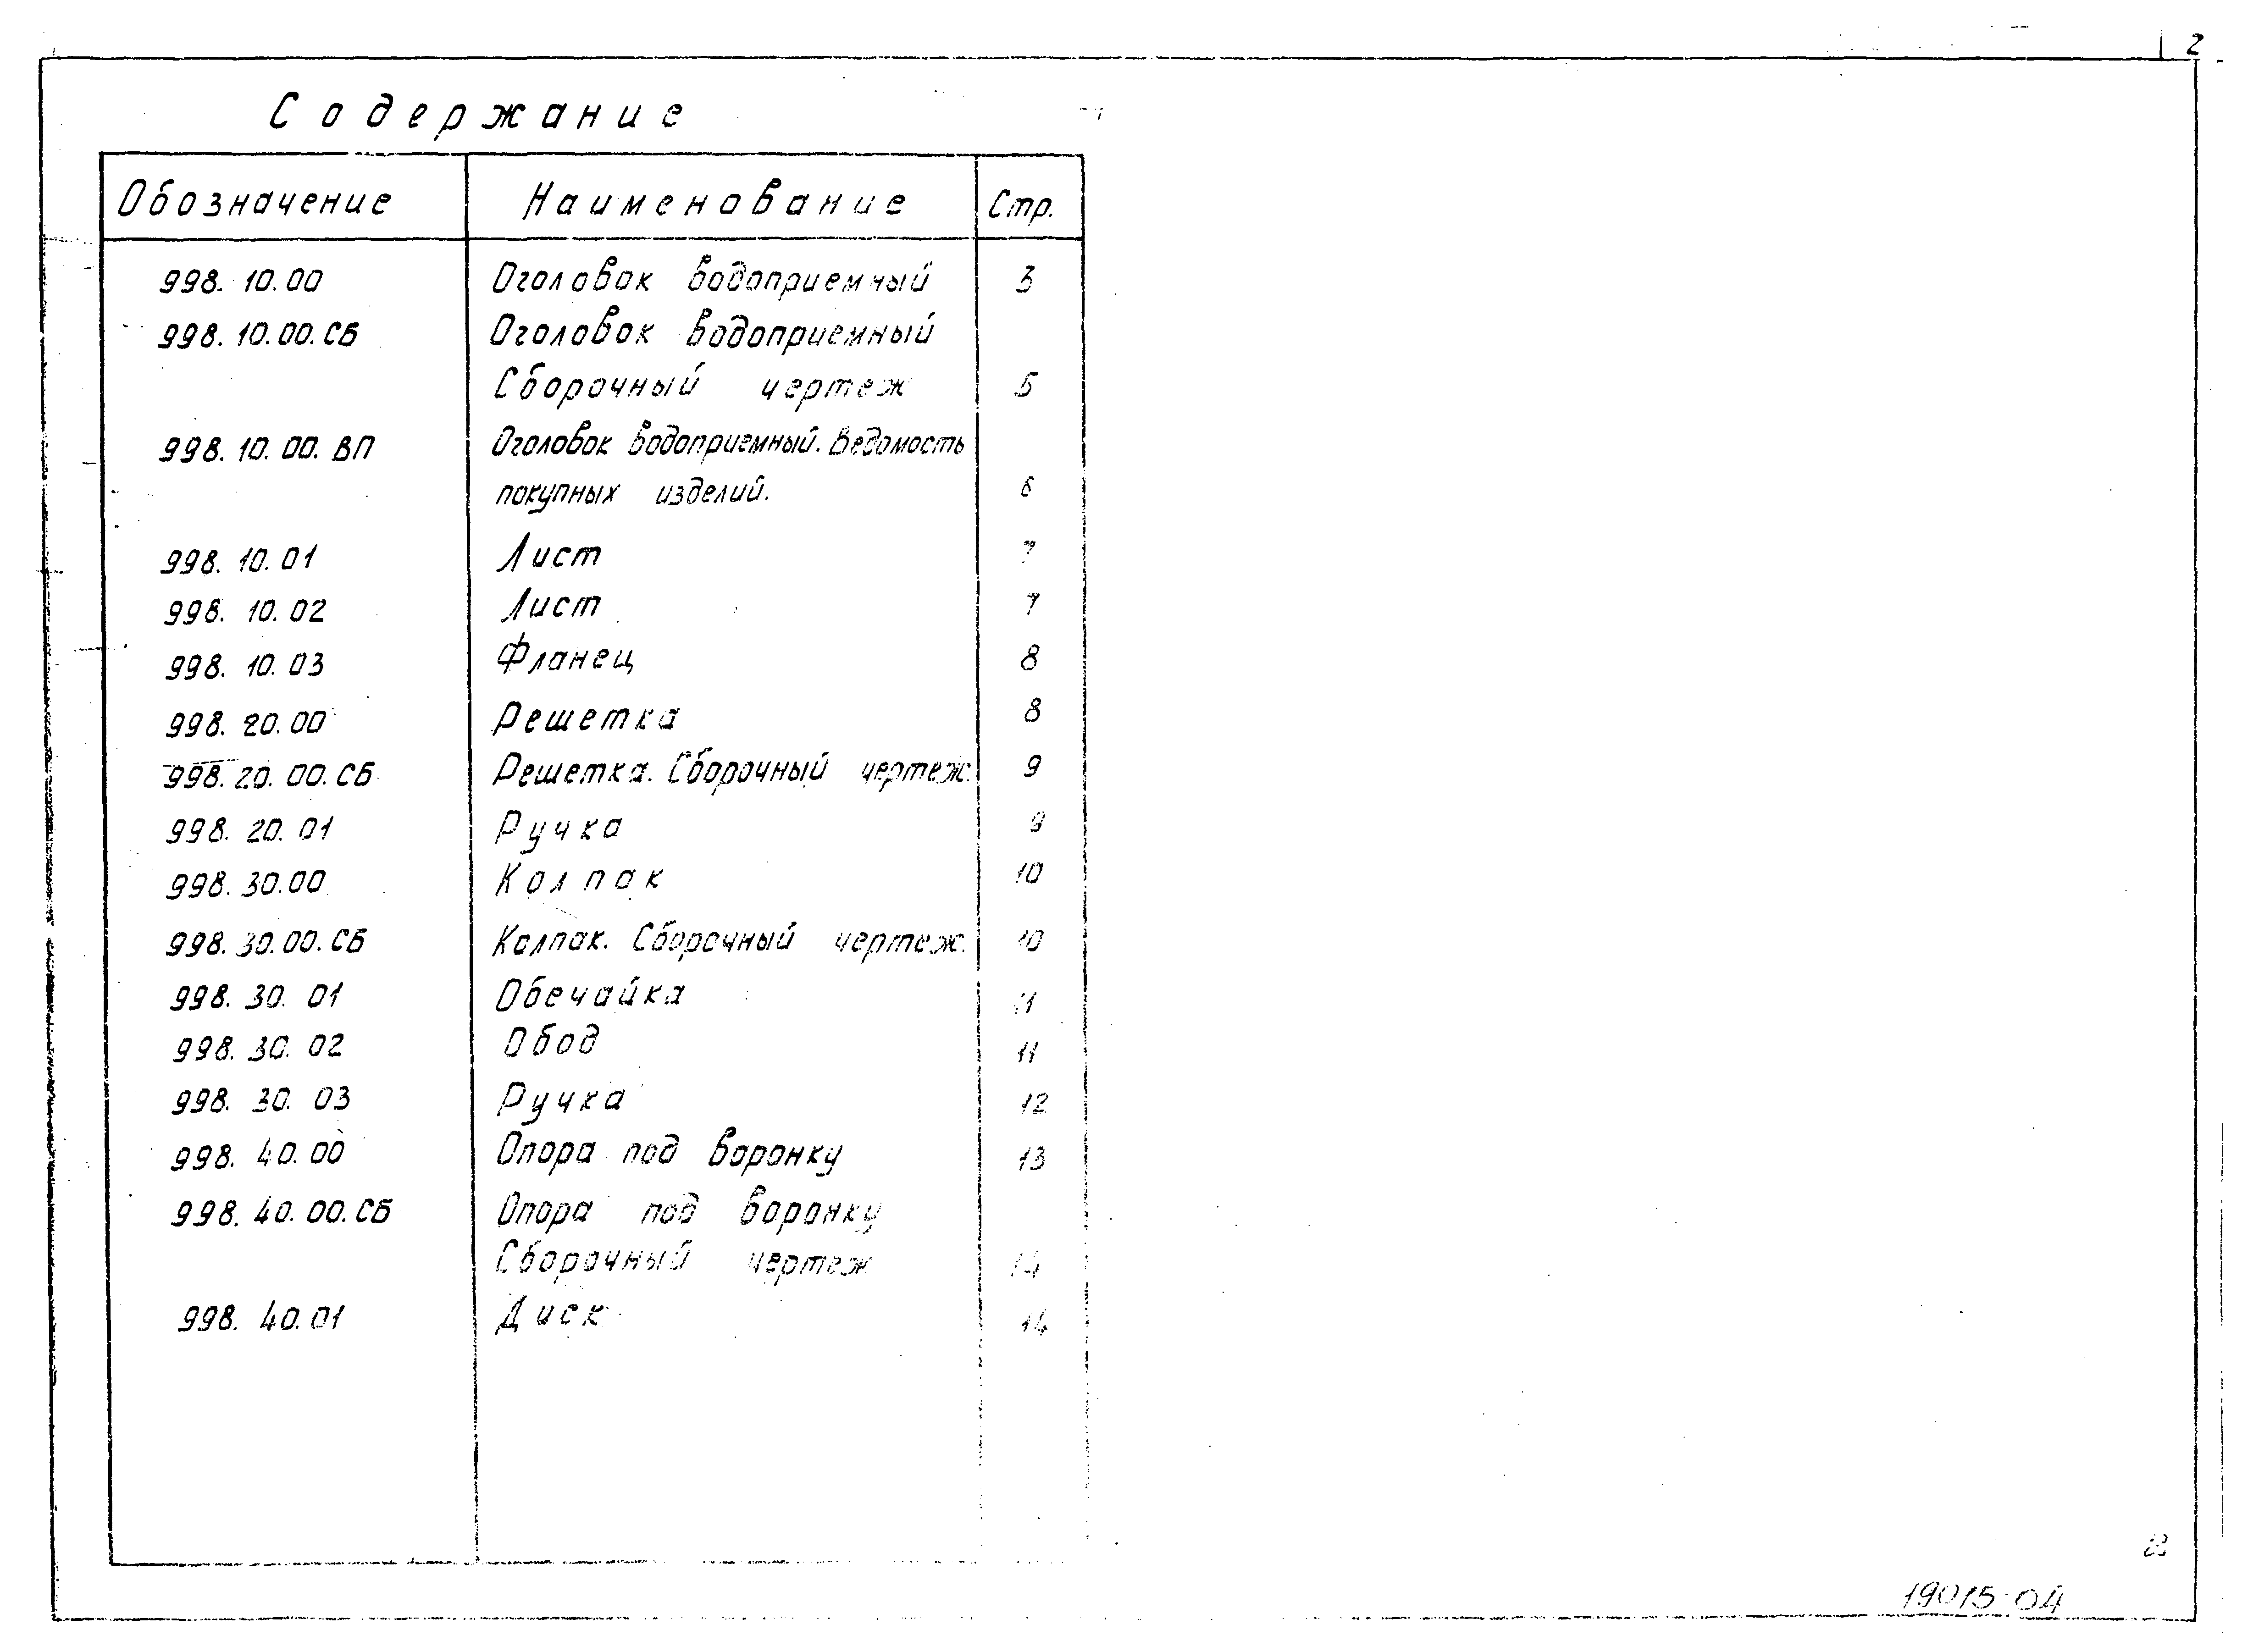 2
Содержание
Обозначение Наименование Стр.
998.10.00 Оголовок водоприемный 3
998.10.00.СБ Оголовок водоприемный
Сборочный чертеж 5
998.10.00.ВП Оголовок водоприемный. Ведомость
покупных изделий. 6
998.10.01 Лист 7
998.10.02 Лист 7
998.10.03 Фланец 8
998.20.00 Решетка 8
998.20.00.СБ Решетка. Сборочный чертеж. 9
998.20.01 Ручка 9
998.30.00 Колпак 10
998.30.00.СБ Колпак. Сборочный чертеж. 10
998.30.01 Обечайка 11
998.30.02 Обод 11
998.30.03 Ручка 12
998.40.00 Опора под воронку 13
998.40.00.СБ Опора под воронку
Сборочный чертеж 14
998.40.01 Диск 14
19015-04